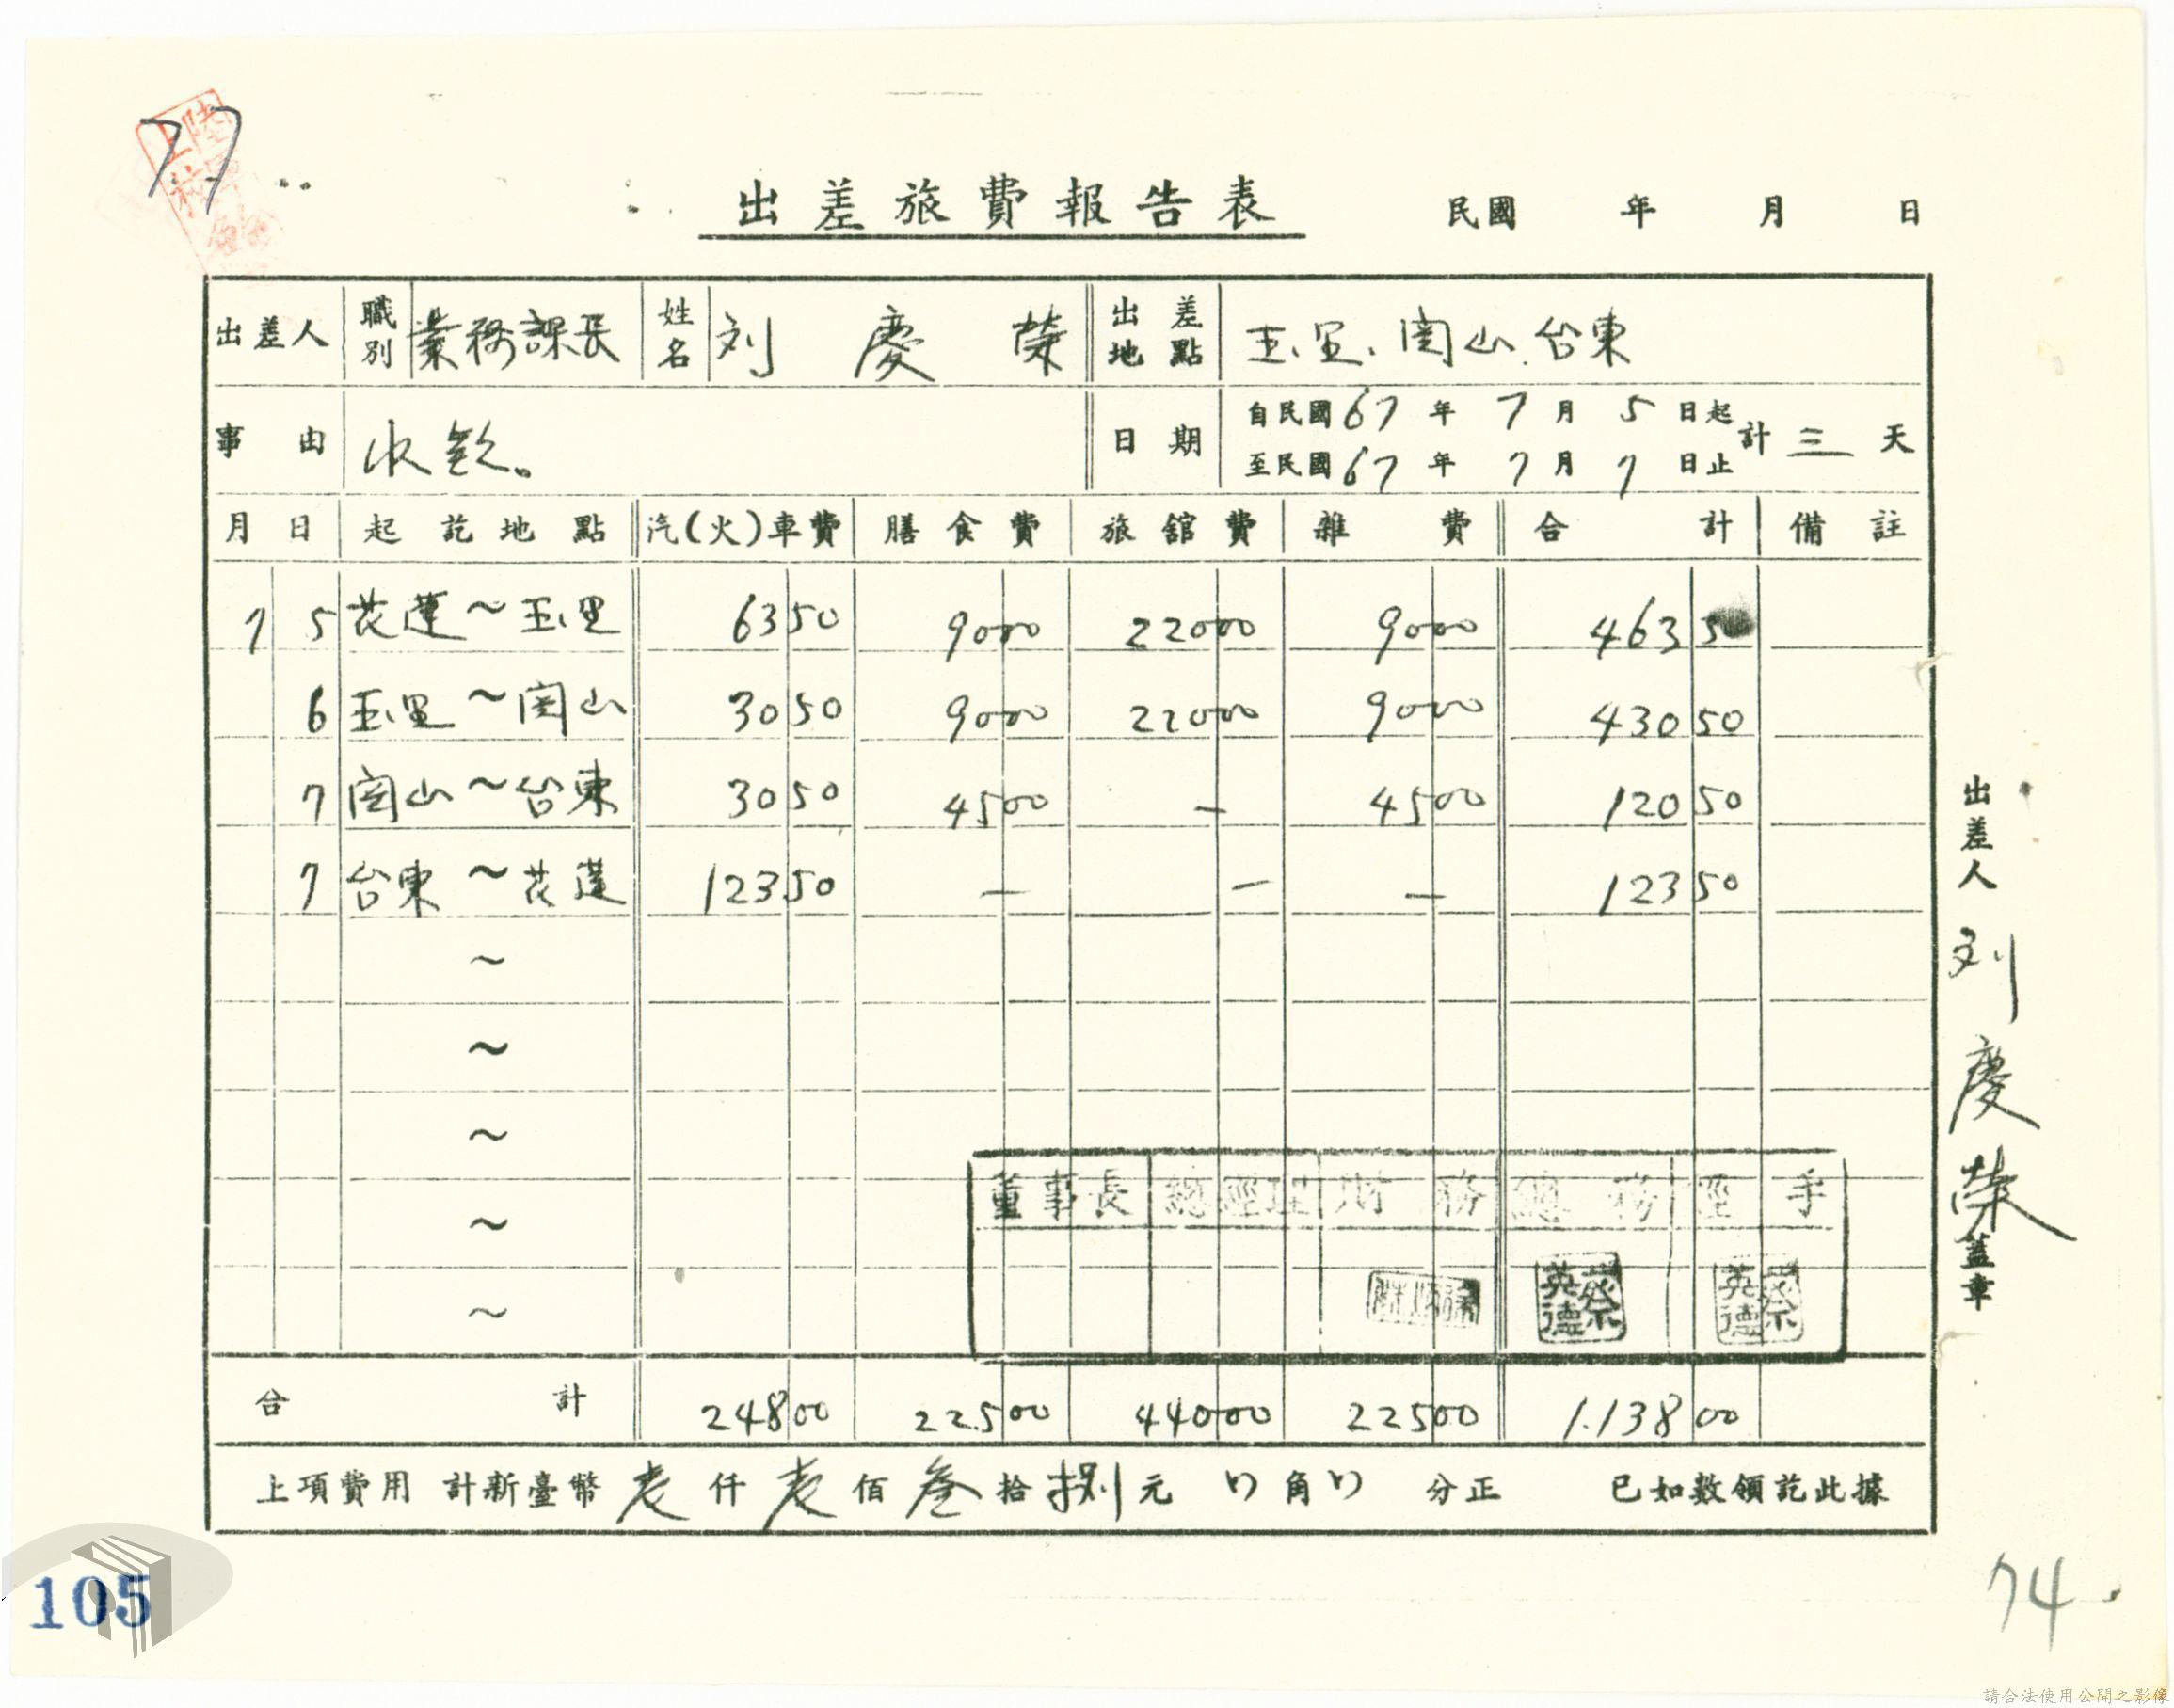 77
出差旅費報告表 民國 年 月 日
出差人 職別 業務課長 姓名 刘慶榮 出差地點 玉里、関山、台東
事由 收款。 日期 自民國67年7月5日起 至民國67年7月7日止 計三天
月 日 起訖地點 汽(火)車費 膳食費 旅舘費 雜費 合計 備註
7 5 花蓮～玉里 63 50 90 00 220 00 90 00 463 50
6 玉里～関山 30 50 90 00 220 00 90 00 430 50
7 関山～台東 30 50 45 00 — 45 00 120 50
7 台東～花蓮 123 50 — — — 123 50
～
～
～
～
～
董事長 總經理 財務 總務 經手
蔡英德 蔡英德
合計 248 00 225 00 440 00 225 00 1.138 00
上項費用計新臺幣壱仟壱佰叁拾捌元 角 分正 已如數領訖此據
出差人 刘慶榮 蓋章
105
74.
請合法使用公開之影像